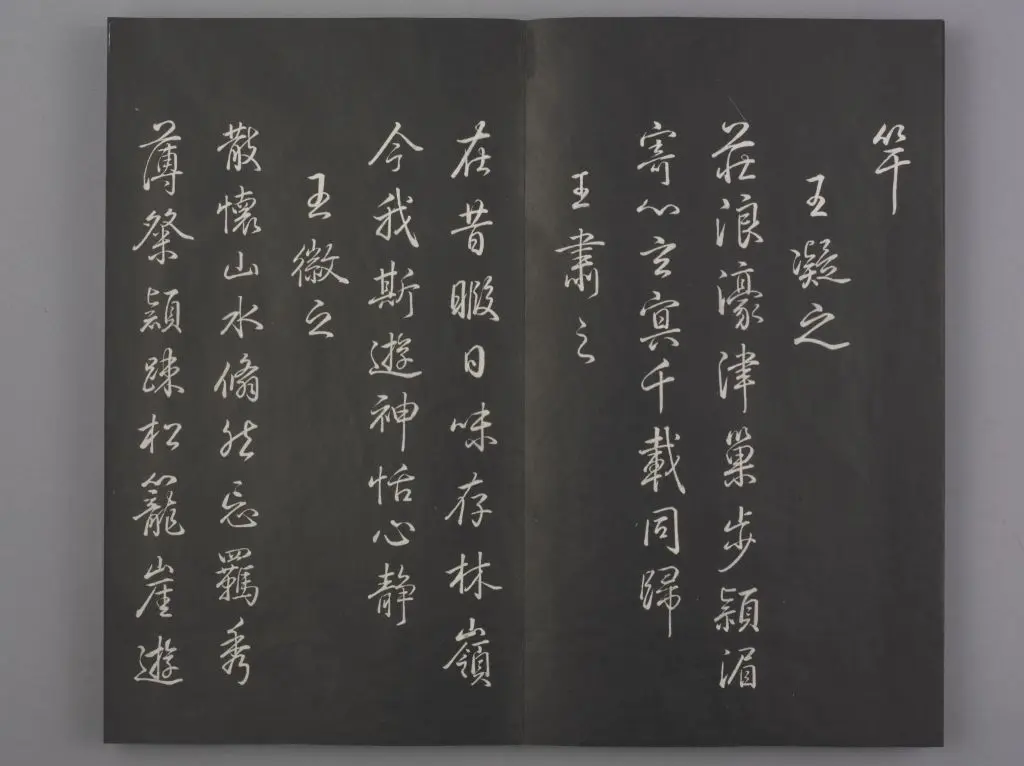 竿
王凝之
莊浪濠津巢步潁湄
寄心玄冥千載同歸
王肅之
在昔暇日味存林嶺
今我斯遊神恬心静
王徽之
散懷山水翛然忘羈秀
薄粲穎踈松籠崖遊